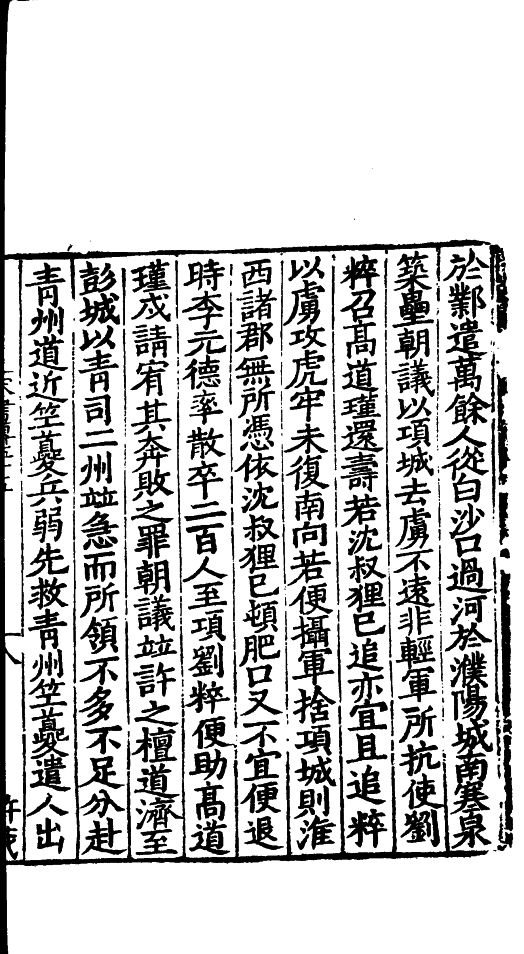 於鄴遣萬餘人從白沙口過河於濮陽城南寒泉
築壘朝議以項城去虜不遠非輕軍所抗使劉
粹召髙道瑾還壽若沈叔狸已追亦宜且追粹
以虜攻虎牢未復南向若便攝軍捨項城則淮
西諸郡無所憑依沈叔狸已頓肥口又不宜便退
時李元德率散卒二百人至項劉粹便助髙道
瑾戍請宥其奔敗之罪朝議竝許之檀道濟至
彭城以青司二州竝急而所領不多不足分赴
青州道近竺夔兵弱先救青州竺夔遣人出